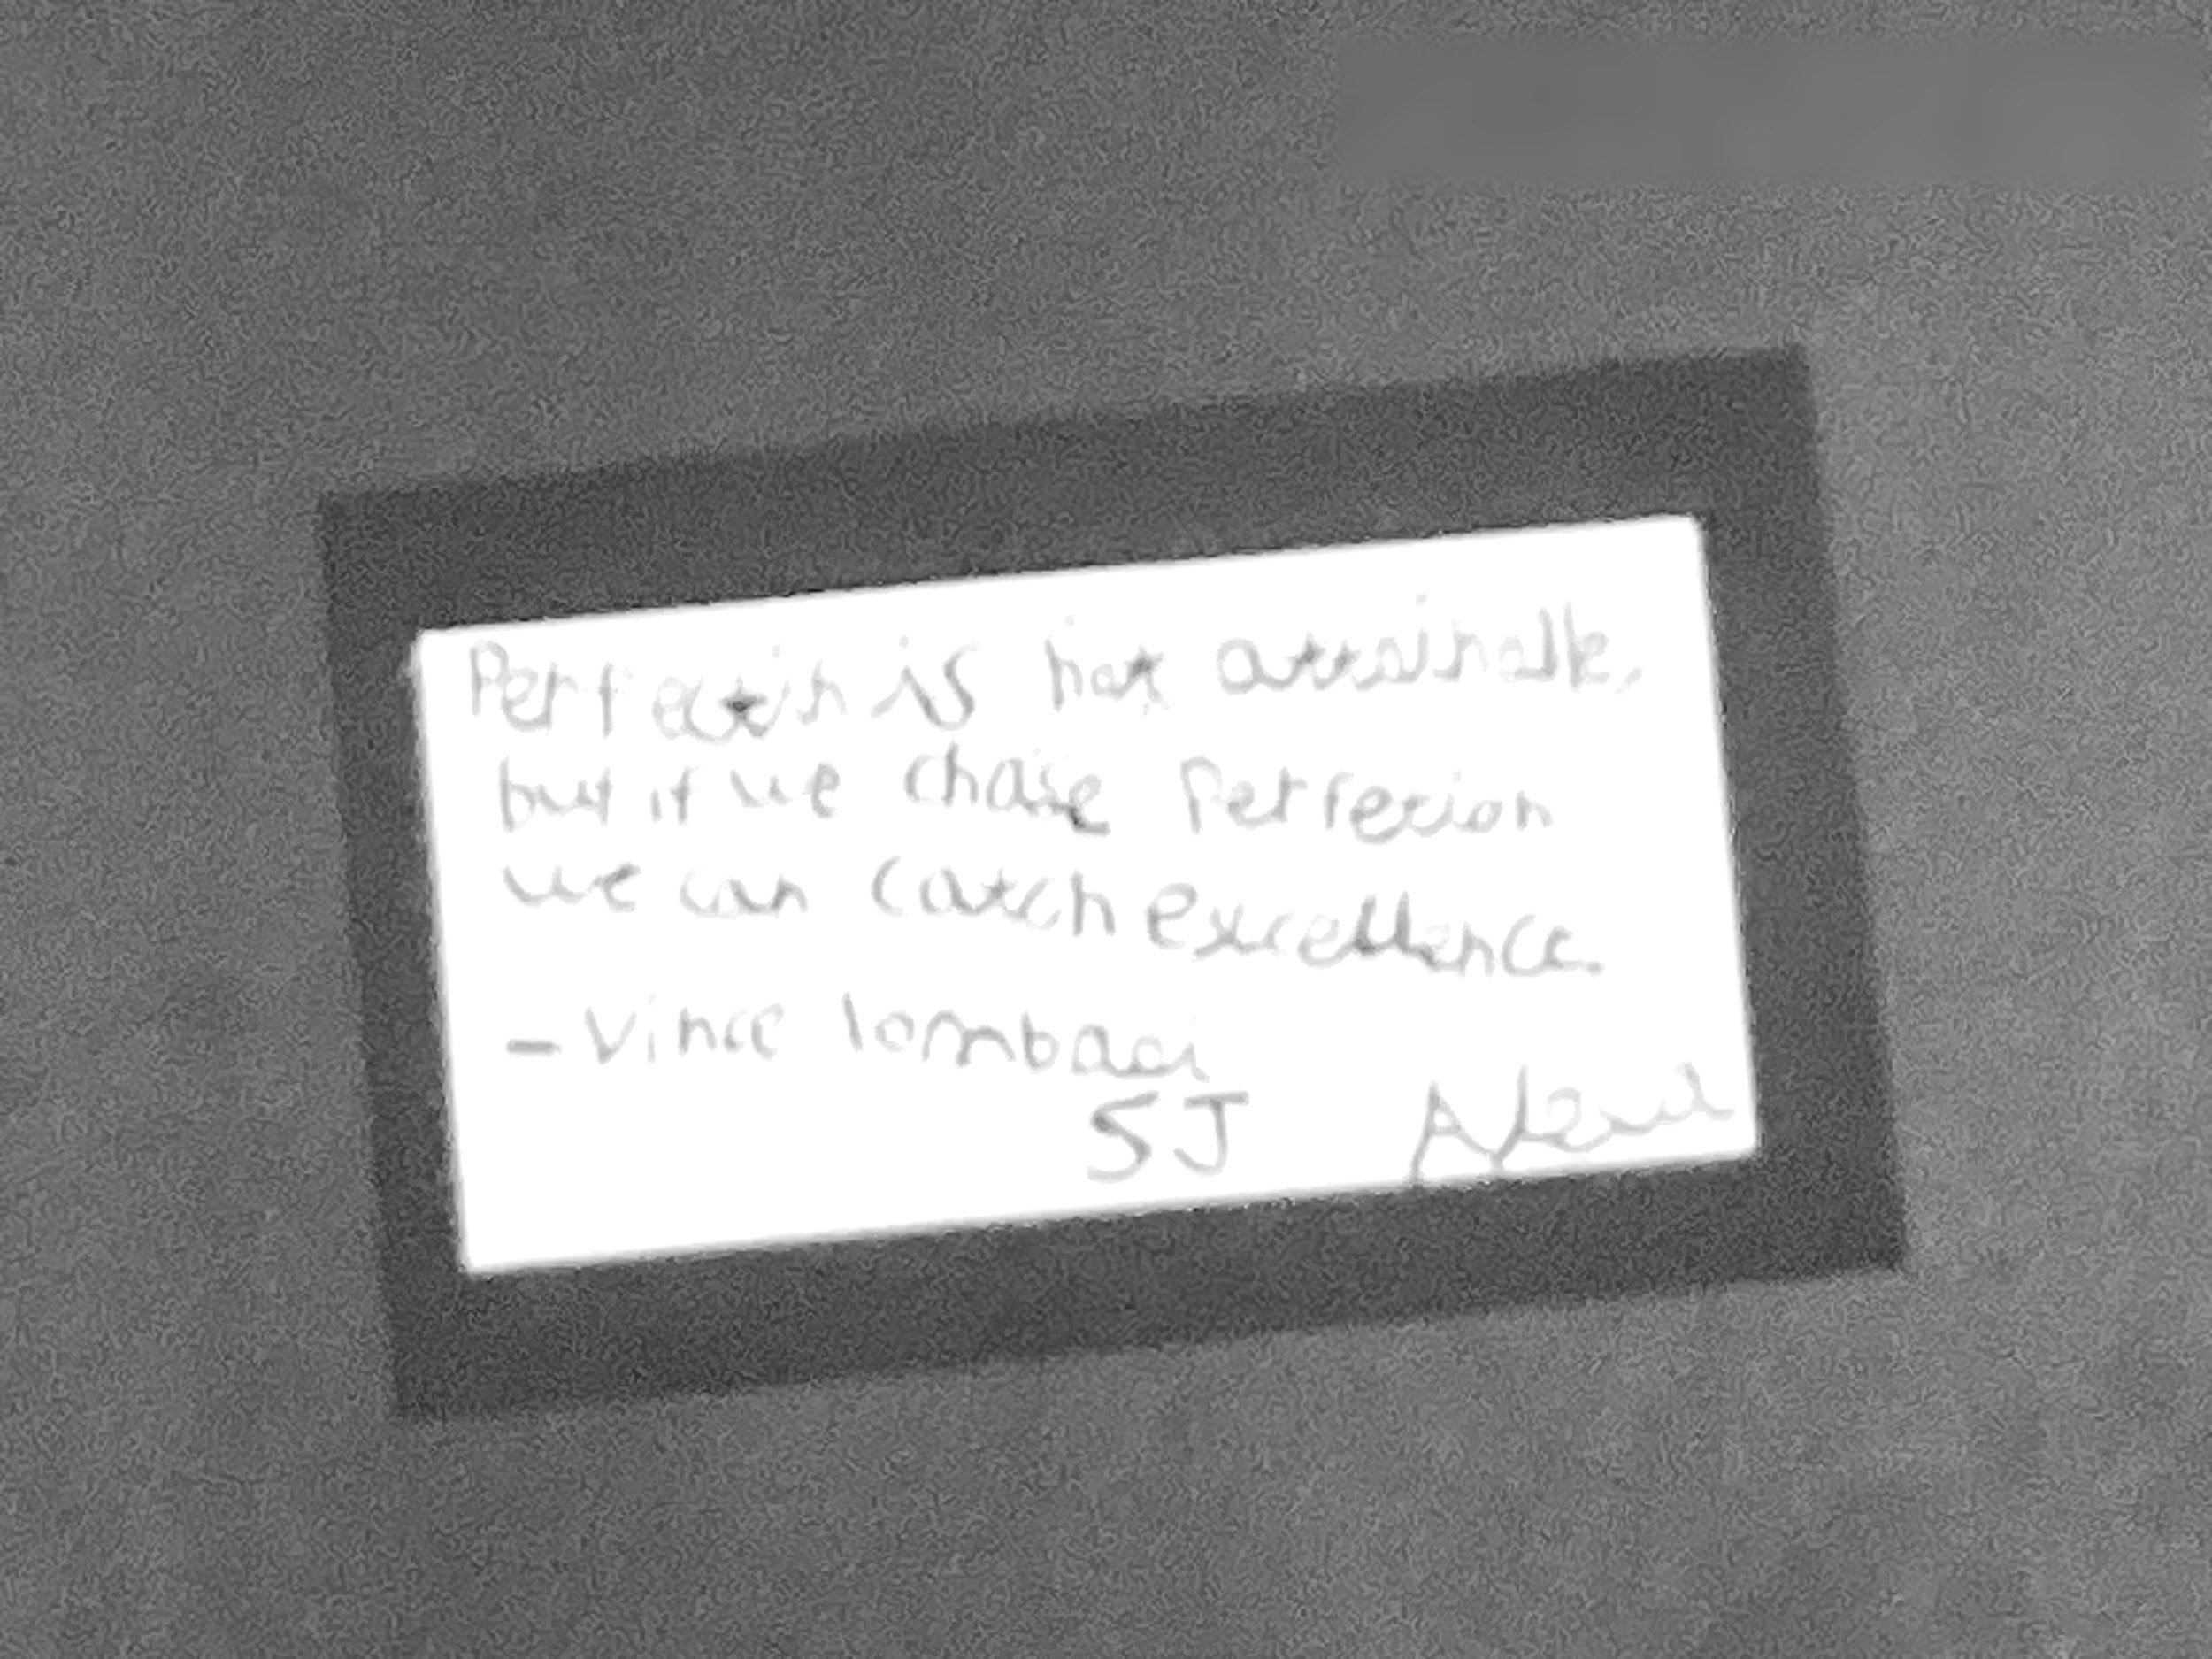 Perfection is not attainable,
but if we chase Perfecion
we can catch excellence.
- Vince lombaci
5J